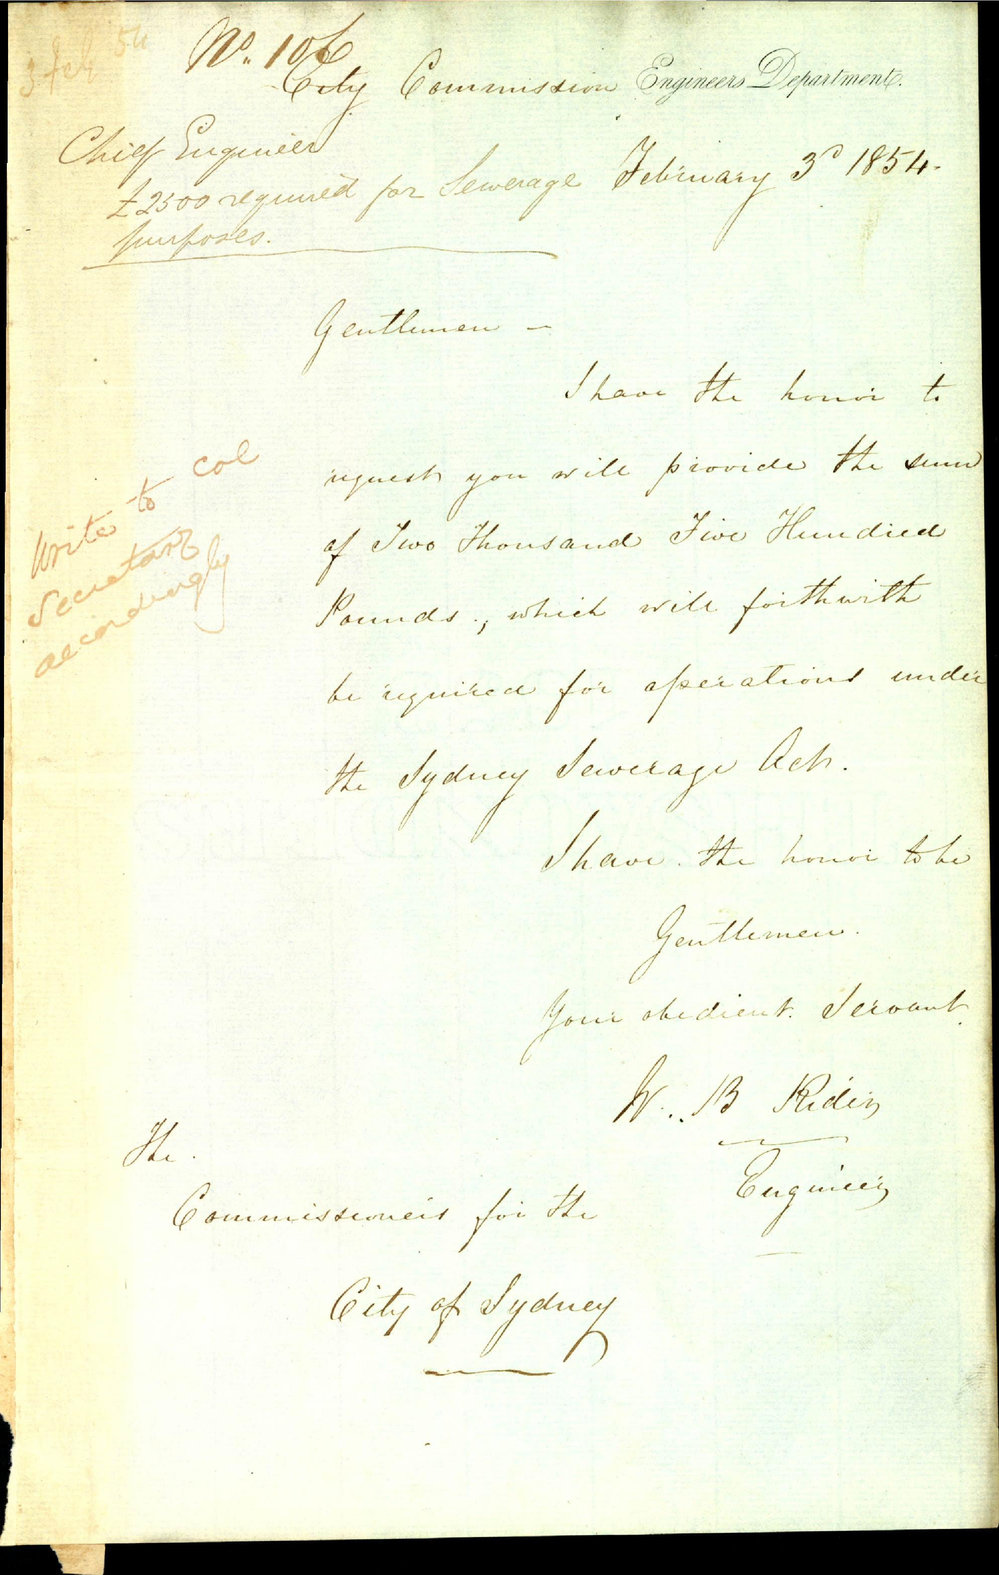 3 Feb 54
No. 106
City Commission Engineers Department.
Chief Engineer
£2500 required for Sewerage
purposes.
February 3d 1854.
Gentlemen –
I have the honor to
request you will provide the sum
of Two Thousand Five Hundred
Pounds., which will forthwith
be required for operations under
the Sydney Sewerage Act.
Write to Col
Secretary
accordingly
I have the honor to be
Gentlemen.
Your obedient Servant.
W. B Rider
Engineer
The
Commissioners for the
City of Sydney